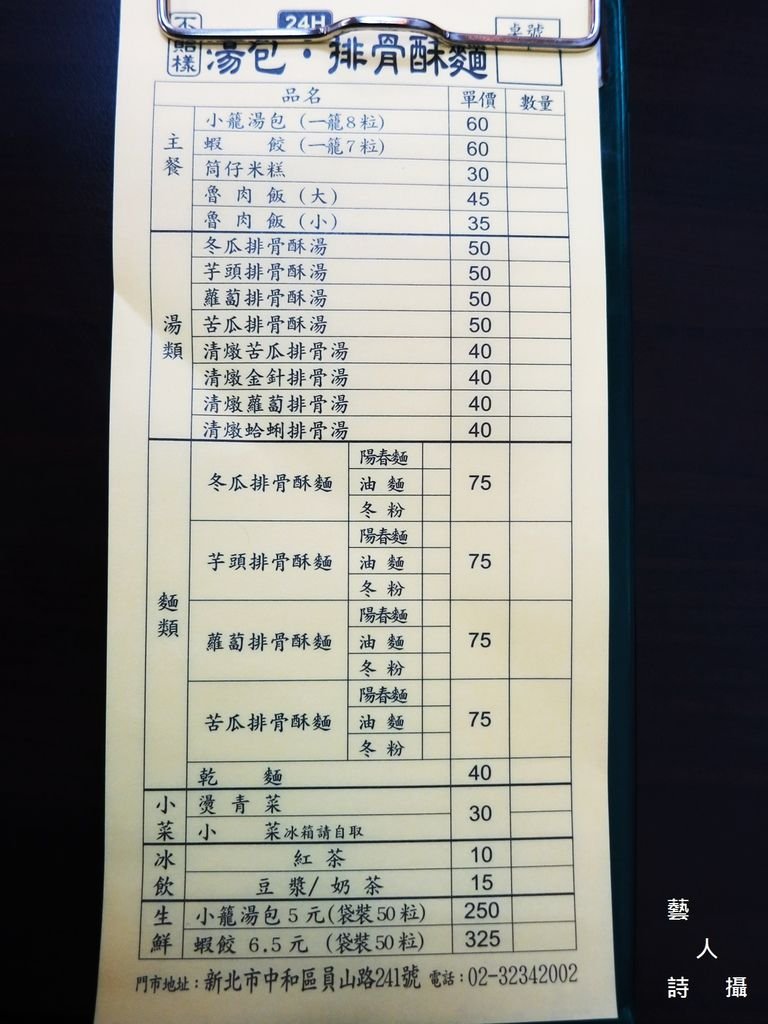 不一樣
24H
桌號
湯包·排骨酥麵
品名 單價 數量
主餐
小籠湯包 (一籠8粒) 60
蝦餃 (一籠7粒) 60
筒仔米糕 30
魯肉飯(大) 45
魯肉飯(小) 35
湯類
冬瓜排骨酥湯 50
芋頭排骨酥湯 50
蘿蔔排骨酥湯 50
苦瓜排骨酥湯 50
清燉苦瓜排骨湯 40
清燉金針排骨湯 40
清燉蘿蔔排骨湯 40
清燉蛤蜊排骨湯 40
麵類
冬瓜排骨酥麵 陽春麵 75
油麵
冬粉
芋頭排骨酥麵 陽春麵 75
油麵
冬粉
蘿蔔排骨酥麵 陽春麵 75
油麵
冬粉
苦瓜排骨酥麵 陽春麵 75
油麵
冬粉
乾麵 40
小菜
燙青菜 30
小菜冰箱請自取
冰飲
紅茶 10
豆漿/奶茶 15
生鮮
小籠湯包5元(袋裝50粒) 250
蝦餃 6.5元 (袋裝50粒) 325
門市地址:新北市中和區員山路241號 電話:02-32342002
藝人詩攝